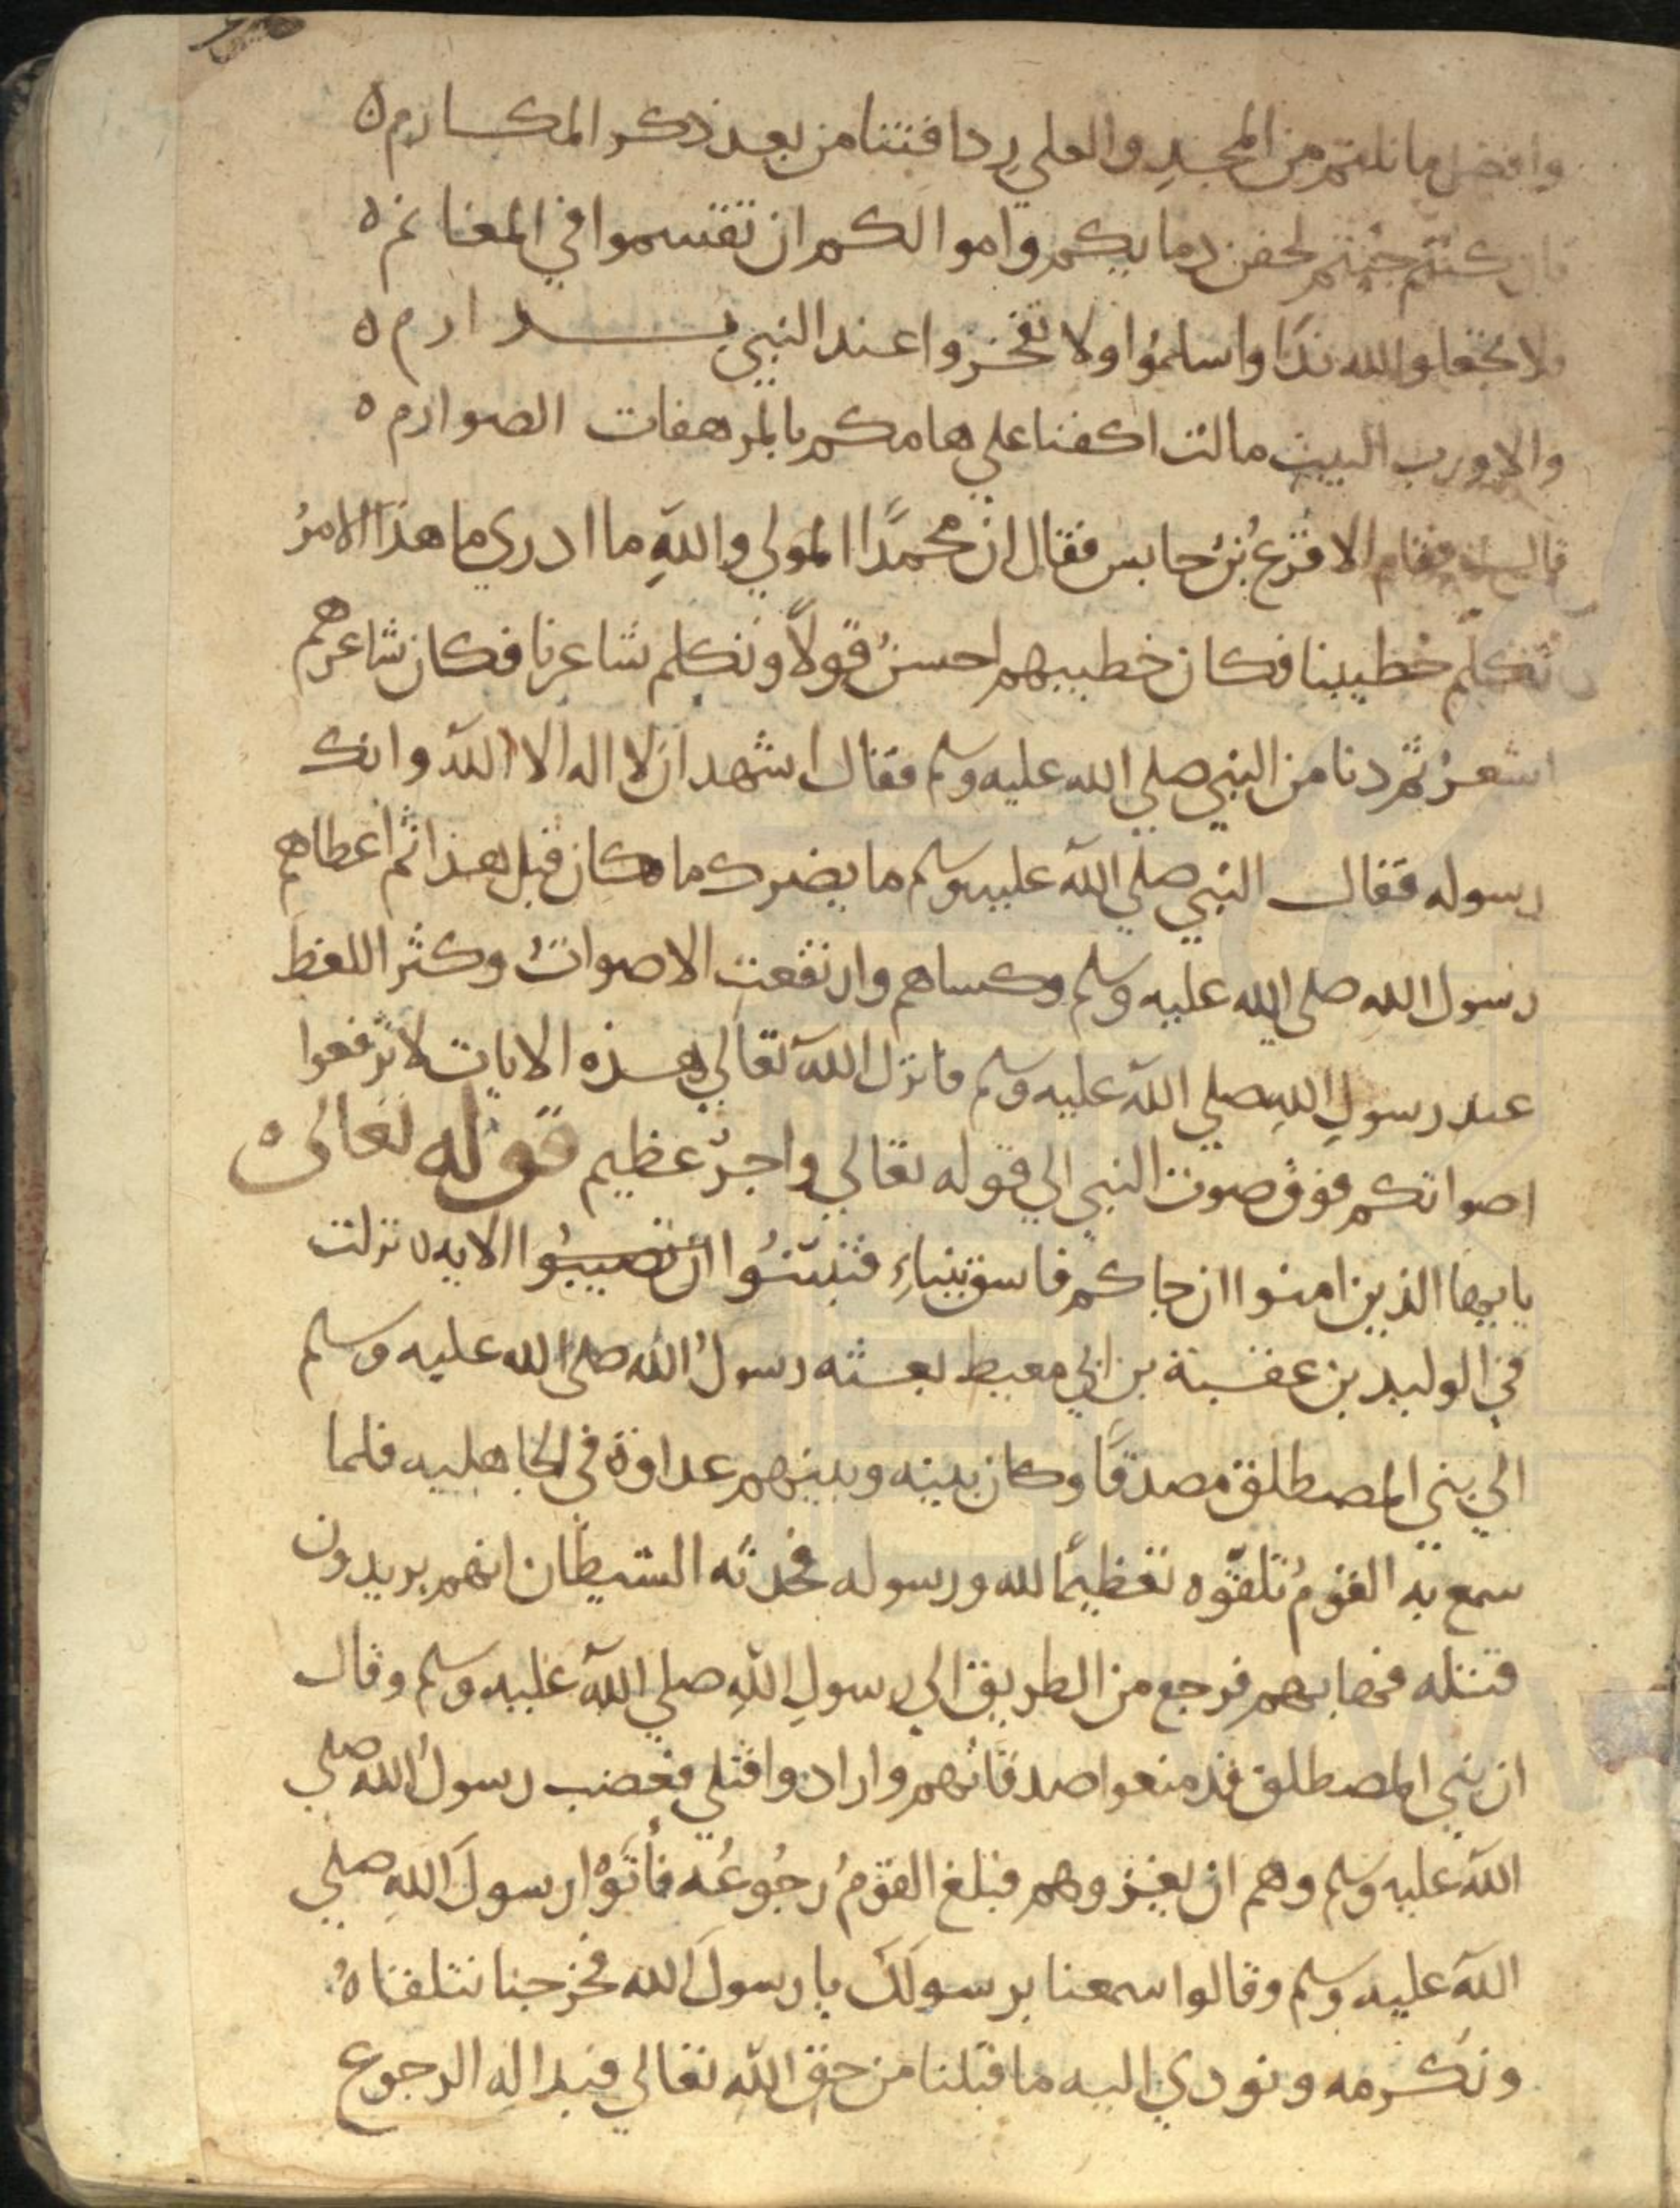 وافضل ما نلتم من المجدِ والعلي ردافتنا من بعد ذكر المكارم ه
فان كنتم جيتم لحقن دمايكم واموالكم ان تقسموا في المغانم ه
فلا تجعلوا لله ندًا واسلموا ولا تفخروا عند النبي بدارم ه
والا ورب البيت مالت اكفنا علي هامكم بالمرهفات الصوارم ه
قال فقام الاقرع بن حابس فقال ان محمدًا المولي واللهِ ما ادري ما هذا الامرُ
تكلم خطيبنا فكان خطيبهم احسنُ قولاً وتكلم شاعرنا فكان شاعرهم
اشعرُ ثم دنا من النبي صلي الله عليه وسلم فقال اشهد ان لا اله الا الله وانك
رسوله فقال النبي صلي الله عليه وسلم ما يضرك ما كان قبل هذا ثم اعطاهم
رسول الله صلى الله عليه وسلم وكساهم وارتفعت الاصواتُ وكثر اللغط
عند رسولِ اللهِ صلي الله عليه وسلم فانزل الله تعالي هذه الايات لا ترفعوا
اصواتكم فوق صوت النبي الي قوله تعالي واجرٌ عظيم قوله تعالى ه
يا ايها الذين امنوا ان جاكم فاسق بنباءٍ فتبينُوا ان تصيبُوا الايه ه نزلت
في الوليد بن عقبة بن ابي معيط بعثه رسولُ الله صلى الله عليه وسلم
الي بني المصطلق مصدقًا وكان بينه وبينهم عداوة في الجاهليه فلما
سمع به القومُ تلقَّوه تعظيمًا لله ورسوله فحدثه الشيطان انهم يريدون
قتله فهابهم فرجع من الطريق الي رسولِ اللهِ صلي الله عليه وسلم وقال
ان بني المصطلق قد منعوا صدقاتهم وارادوا قتلي فغضب رسولُ الله صلي
الله عليه وسلم وهم ان يغزوهم فبلغ القومُ رجُوعُه فأتَوْا رسولَ اللهِ صلي
الله عليه وسلم وقالوا سمعنا برسولكَ يا رسولَ الله فخرجنا نتلقاهُ
ونكرمه ونودي اليه ما قبلنا من حق اللهِ تعالي فبدا له الرجوع